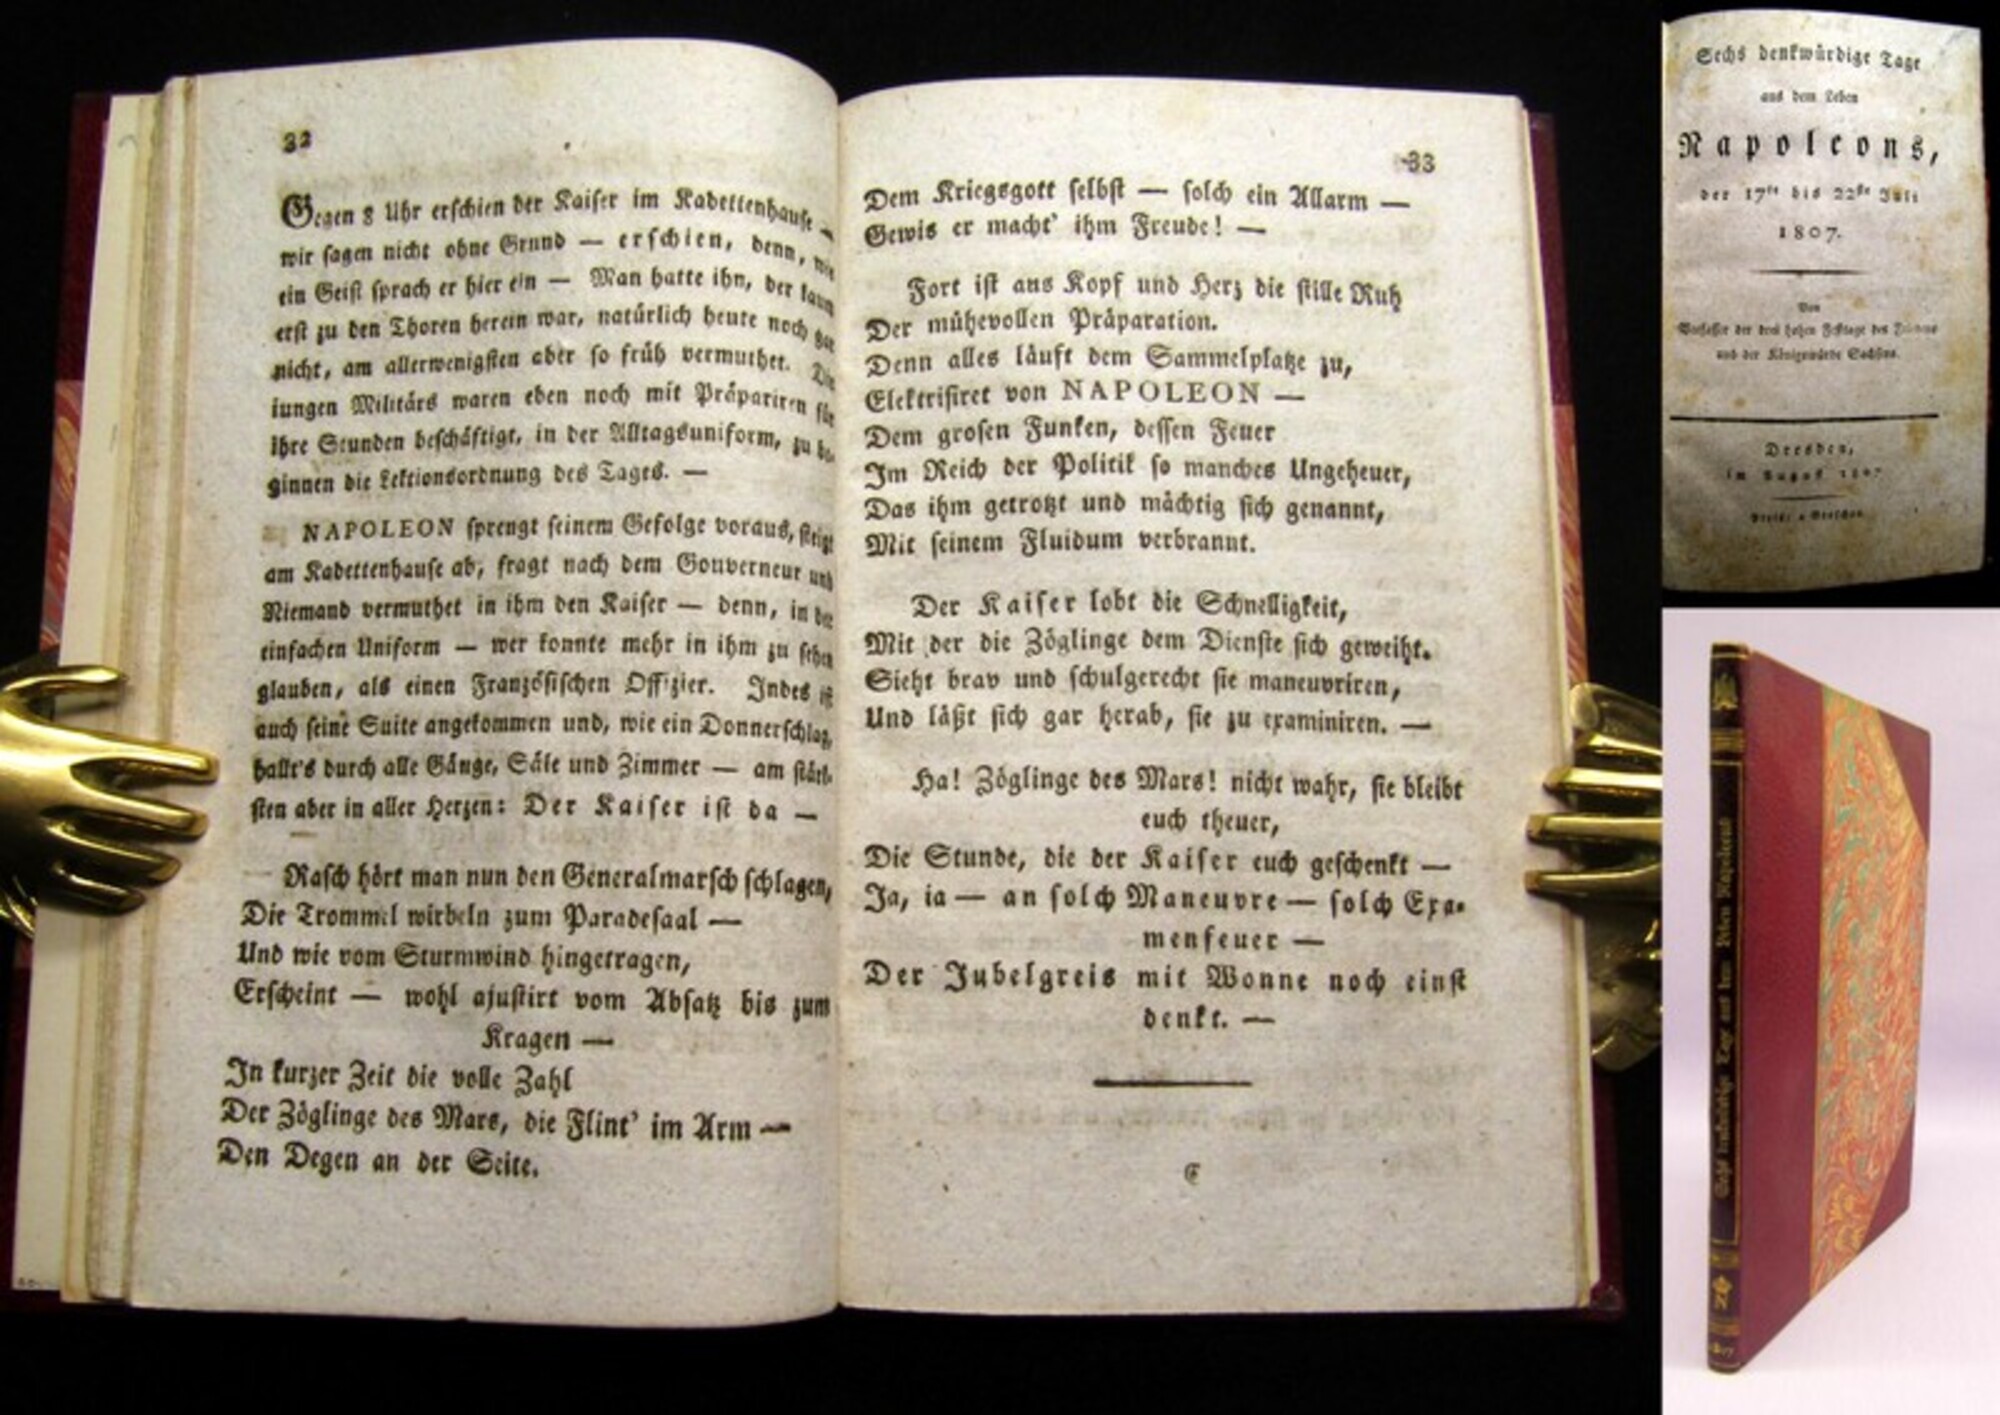 32
Gegen 8 Uhr erschien der Kaiser im Kadettenhause —
wir sagen nicht ohne Grund — erschien, denn, wie
ein Geist sprach er hier ein — Man hatte ihn, der kaum
erst zu den Thoren herein war, natürlich heute noch gar
nicht, am allerwenigsten aber so früh vermuthet. Die
iungen Militärs waren eben noch mit Präpariren für
ihre Stunden beschäftigt, in der Alltagsuniform, zu be-
ginnen die Lektionsordnung des Tages. —
NAPOLEON sprengt seinem Gefolge voraus, steigt
am Kadettenhause ab, fragt nach dem Gouverneur und
Niemand vermuthet in ihm den Kaiser — denn, in der
einfachen Uniform — wer konnte mehr in ihm zu sehen
glauben, als einen Französischen Offizier. Indes ist
auch seine Suite angekommen und, wie ein Donnerschlag,
hallt's durch alle Gänge, Säle und Zimmer — am stärk-
sten aber in aller Herzen: Der Kaiser ist da —
Rasch hört man nun den Generalmarsch schlagen,
Die Trommel wirbeln zum Paradesaal —
Und wie vom Sturmwind hingetragen,
Erscheint — wohl ajustirt vom Absatz bis zum
Kragen —
In kurzer Zeit die volle Zahl
Der Zöglinge des Mars, die Flint' im Arm —
Den Degen an der Seite.
33
Dem Kriegsgott selbst — solch ein Allarm —
Gewis er macht' ihm Freude! —
Fort ist aus Kopf und Herz die stille Ruh
Der mühevollen Präparation.
Denn alles läuft dem Sammelplatze zu,
Elektrisiret von NAPOLEON —
Dem grosen Funken, dessen Feuer
Im Reich der Politik so manches Ungeheuer,
Das ihm getrotzt und mächtig sich genannt,
Mit seinem Fluidum verbrannt.
Der Kaiser lobt die Schnelligkeit,
Mit der die Zöglinge dem Dienste sich geweiht.
Sieht brav und schulgerecht sie maneuvriren,
Und läßt sich gar herab, sie zu examiniren. —
Ha! Zöglinge des Mars! nicht wahr, sie bleibt
euch theuer,
Die Stunde, die der Kaiser euch geschenkt —
Ja, ia — an solch Maneuvre — solch Exa-
menfeuer —
Der Jubelgreis mit Wonne noch einst
denkt. —
E
Sechs denkwürdige Tage
aus dem Leben
Napoleons,
der 17te bis 22ste Juli
1807.
Vom
Verfasser der drei hohen Festtage des Friedens
und der Königswürde Sachsens.
Dresden,
im August 1807
Preis: Groschen
Sechs denkwürdige Tage aus dem Leben Napoleons
1807